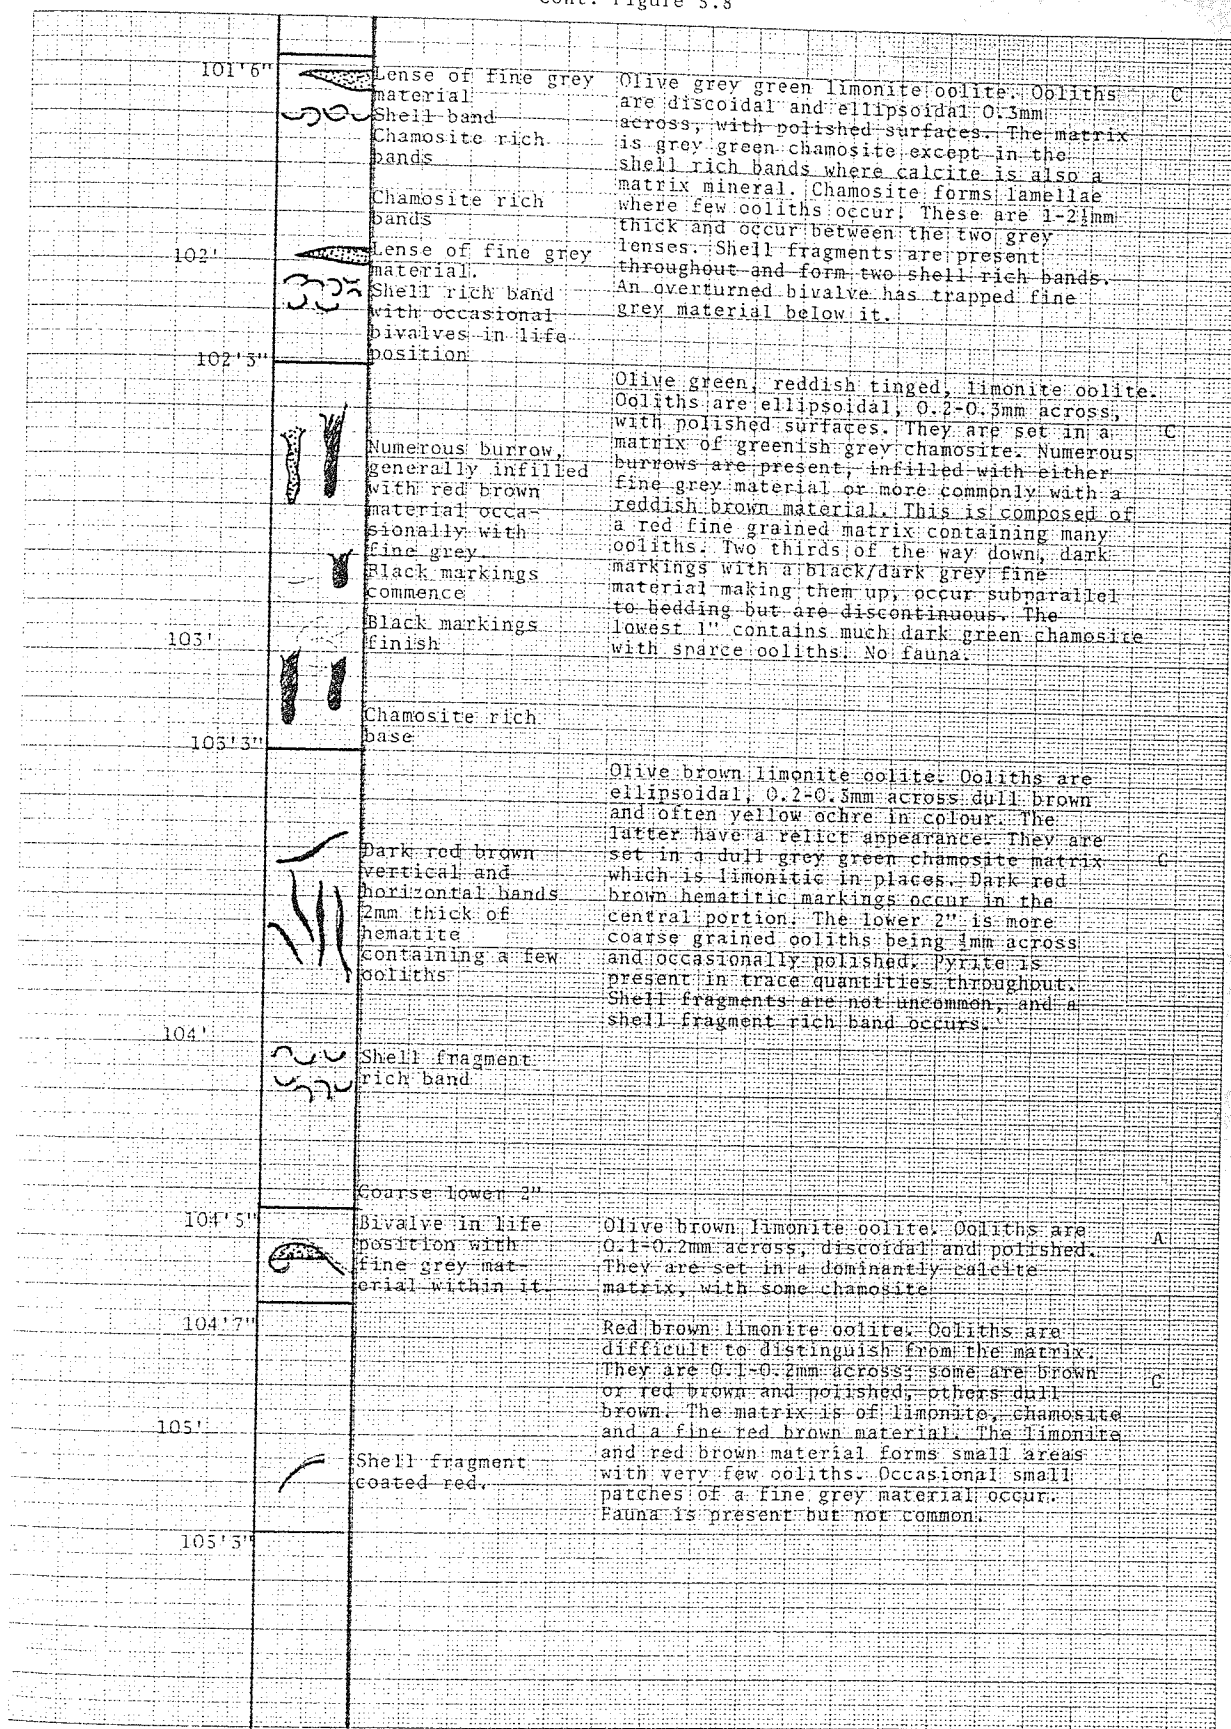 Cont. Figure 5.8
101'6"
Lense of fine grey
material
Shell band
Chamosite rich
bands
Chamosite rich
bands
102'
Lense of fine grey
material.
Shell rich band
with occasional
bivalves in life
position
102'3"
Olive grey green limonite oolite. Ooliths
are discoidal and ellipsoidal 0.3mm
across, with polished surfaces. The matrix
is grey green chamosite except in the
shell rich bands where calcite is also a
matrix mineral. Chamosite forms lamellae
where few ooliths occur. These are 1-2½mm
thick and occur between the two grey
lenses. Shell fragments are present
throughout and form two shell rich bands.
An overturned bivalve has trapped fine
grey material below it.
C
Numerous burrow,
generally infilled
with red brown
material occa-
sionally with
fine grey.
Black markings
commence
Black markings
finish
103'
Chamosite rich
base
103'3"
Olive green, reddish tinged, limonite oolite.
Ooliths are ellipsoidal, 0.2-0.3mm across,
with polished surfaces. They are set in a
matrix of greenish grey chamosite. Numerous
burrows are present, infilled with either
fine grey material or more commonly with a
reddish brown material. This is composed of
a red fine grained matrix containing many
ooliths. Two thirds of the way down, dark
markings with a black/dark grey fine
material making them up, occur subparallel
to bedding but are discontinuous. The
lowest 1" contains much dark green chamosite
with sparce ooliths. No fauna.
C
Dark red brown
vertical and
horizontal bands
2mm thick of
hematite
containing a few
ooliths
104'
Shell fragment
rich band
Coarse lower 2"
Olive brown limonite oolite. Ooliths are
ellipsoidal, 0.2-0.3mm across dull brown
and often yellow ochre in colour. The
latter have a relict appearance. They are
set in a dull grey green chamosite matrix
which is limonitic in places. Dark red
brown hematitic markings occur in the
central portion. The lower 2" is more
coarse grained ooliths being mm across
and occasionally polished. Pyrite is
present in trace quantities throughout.
Shell fragments are not uncommon, and a
shell fragment rich band occurs.
C
104'5"
Bivalve in life
position with
fine grey mat-
erial within it.
Olive brown limonite oolite. Ooliths are
0.1-0.2mm across, discoidal and polished.
They are set in a dominantly calcite
matrix, with some chamosite
A
104'7"
105'
Shell fragment
coated red.
105'3"
Red brown limonite oolite. Ooliths are
difficult to distinguish from the matrix.
They are 0.1-0.2mm across; some are brown
or red brown and polished, others dull
brown. The matrix is of limonite, chamosite
and a fine red brown material. The limonite
and red brown material forms small areas
with very few ooliths. Occasional small
patches of a fine grey material occur.
Fauna is present but not common.
C